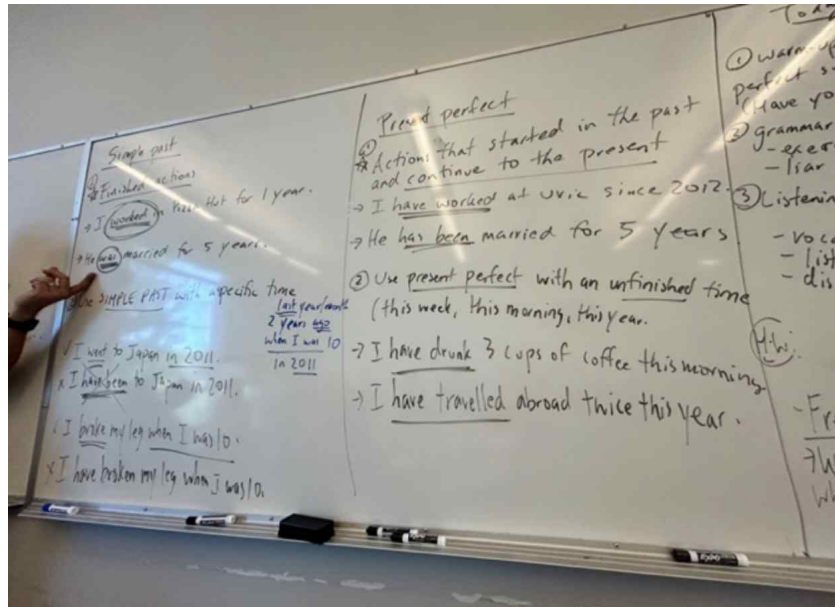 Simple past
① Finished actions
→ I worked in Pizza Hut for 1 year.
→ He was married for 5 years.
Use SIMPLE PAST with a specific time
last year/month
2 years ago
when I was 10
in 2011
✓ I went to Japan in 2011.
x I have been to Japan in 2011.
✓ I broke my leg when I was 10.
x I have broken my leg when I was 10.
Present perfect
① Actions that started in the past
and continue to the present
→ I have worked at uvic since 2012.
→ He has been married for 5 years
② Use present perfect with an unfinished time
(this week, this morning, this year.
→ I have drunk 3 cups of coffee this morning
→ I have travelled abroad twice this year.
① warm-up
perfect
(Have yo
② grammar
- exer
- liar
③ Listenin
- voca
- list
- dis
H.W.